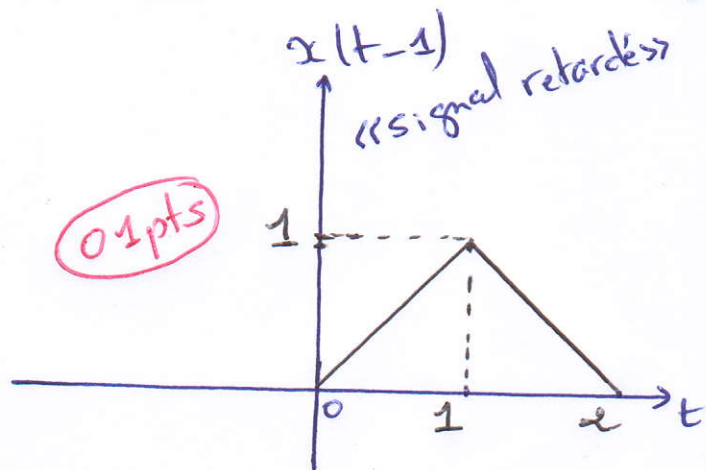 x(t-1)
«signal retardé»
01pts
1
0
1
2
t